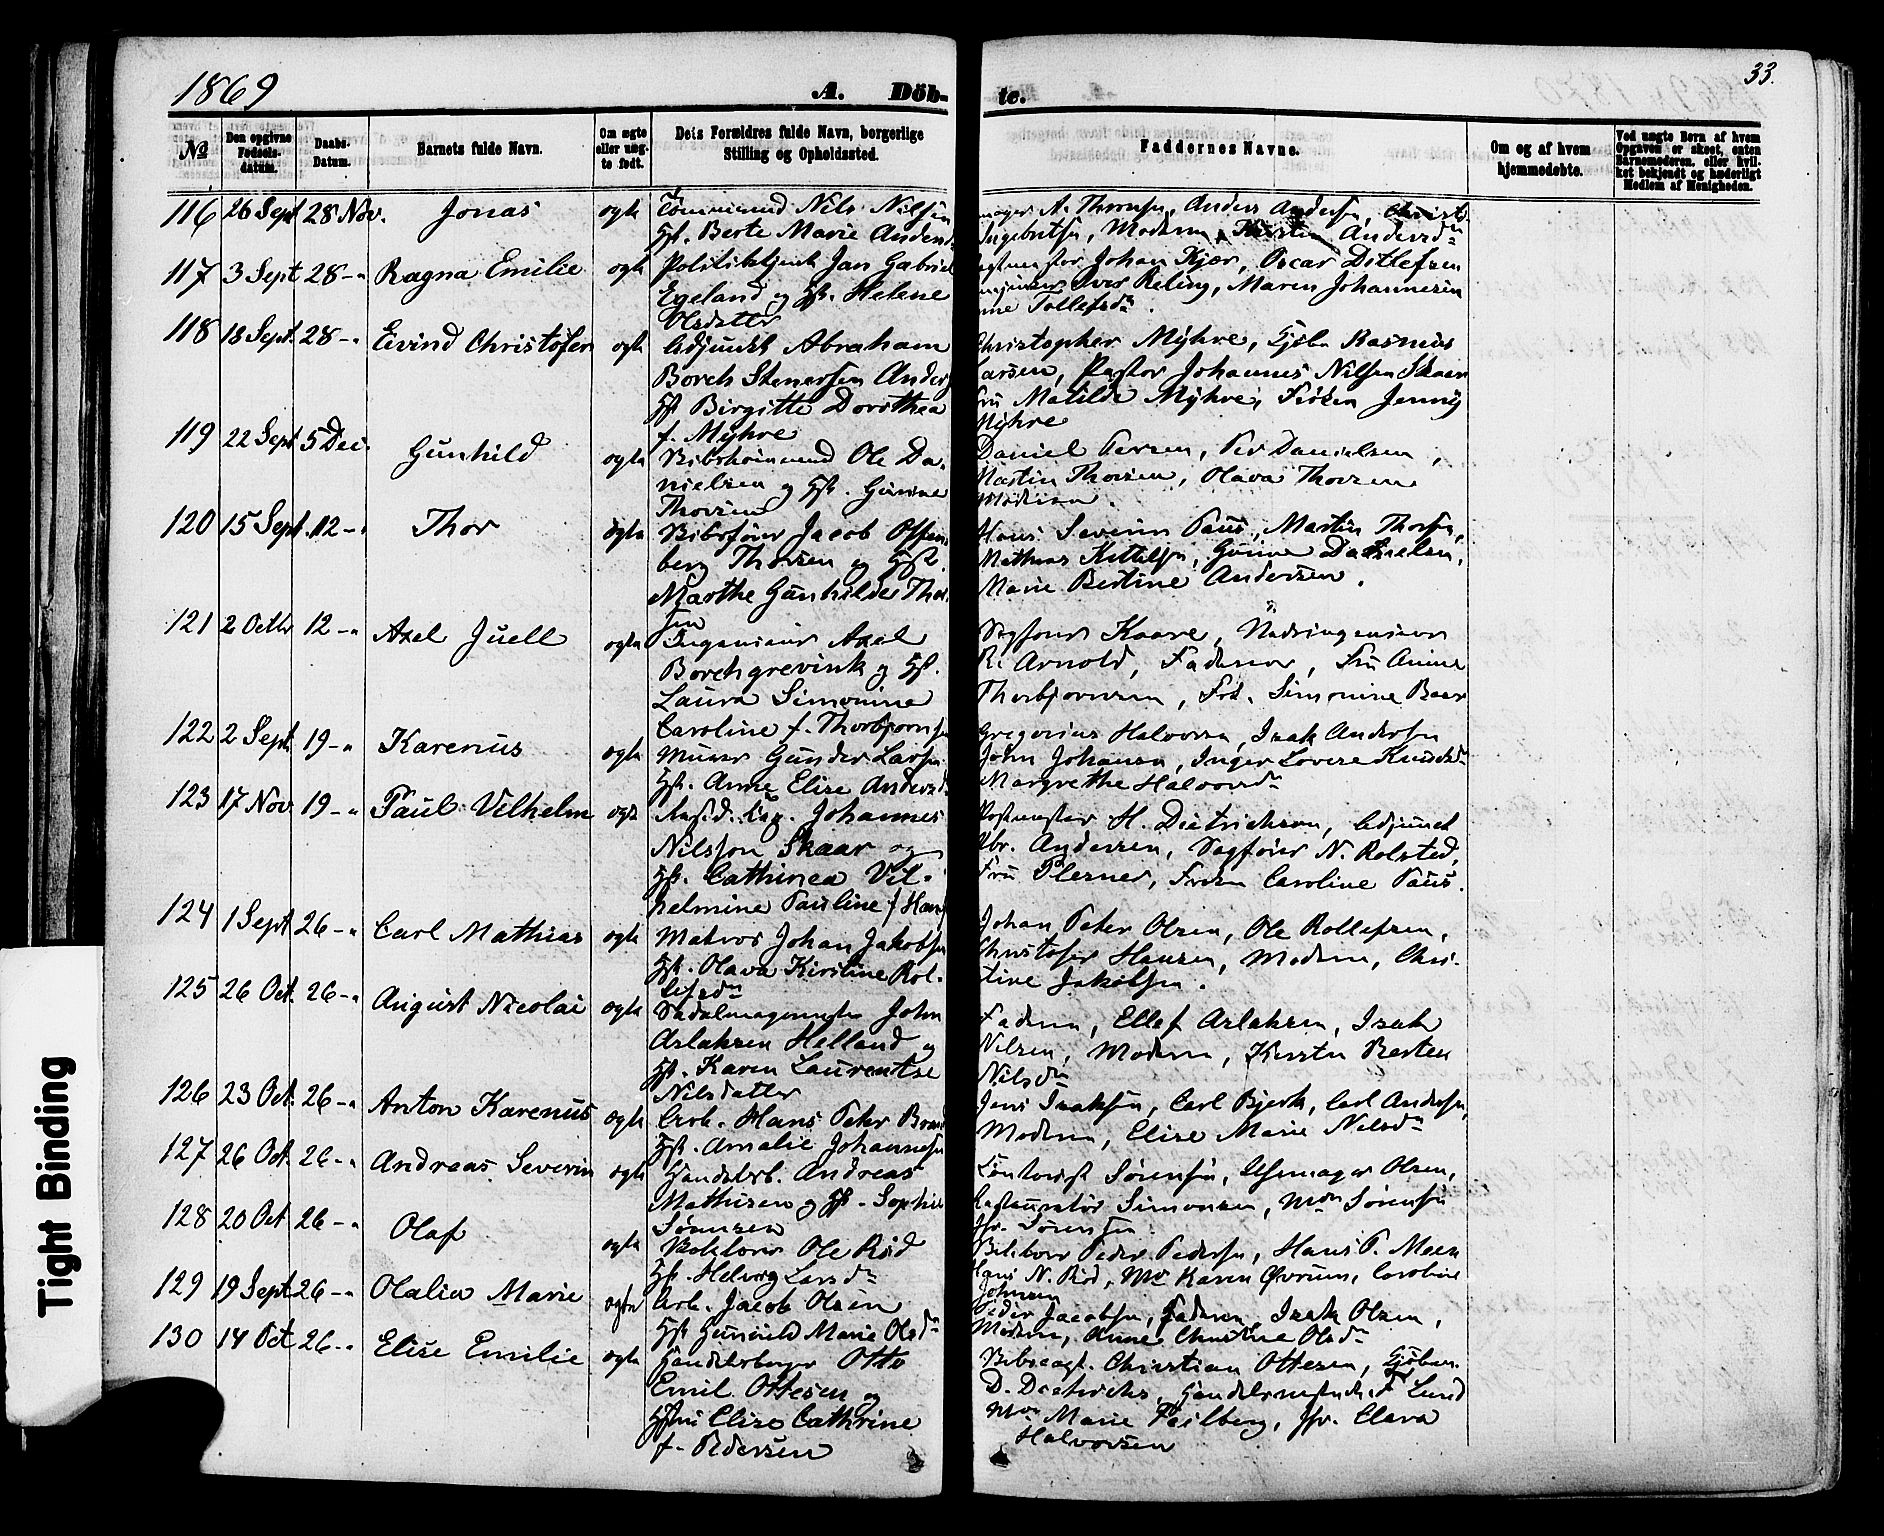 1869
A. Döb-
te.
33.
No
Den opgivne Fødsels-datum.
Daabs-Datum.
Barnets fulde Navn.
Om ægte eller uægte født.
Dets Forældres fulde Navn, borgerlige Stilling og Opholdssted.
Faddernes Navne.
Om og af hvem hjemmedøbte.
Ved uægte Børn af hvem Opgaven er skeet, enten Barnemoderen, eller hvilket bekjendt og hæderligt Medlem af Menigheden.
116 26 Sept 28 Nov. Jonas ogte Nils Nilsen
Berte Marie Anders
A. Thorsen, Anders Andersen,
Moderen, Kirsten Andersdn
117 3 Sept 28 -" Ragna Emilie ogte Politibetjent Jan Gabriel
Egeland og Hst. Helene
Olsdatter
Johan Kjær, Oscar Ditlefsen
Reling, Maren Johannesen
Tollefsdn.
118 18 Sept 28 -" Eivind Christofer ogte Adjunkt Abraham
Borch Stenersen Anders
Birgitte Dorothea
f. Myhre
Christopher Myhre, Rasmus
Larsen, Pastor Johannes Nilsen Skaar
Fru Matilde Myhre, Frøken Jenny
Myhre
119 22 Sept 5 Dec. Gunhild ogte Ole Da-
nielsen og Hst. Gunine
Thorsen
Daniel Persen, Per Danielsen,
Martin Thorsen, Olava Thorsen
Moderen.
120 15 Sept. 12 -" Thor ogte Jacob Offen
berg Thorsen og Hst.
Marthe Gunhilde Thor
sen
Hans Severin Paus, Martin Thorsen,
Mathias Kittilsen, Gunine Danielsen,
Marie Bertine Andersen.
121 2 Octbr 12 -" Axel Juell ogte Ingenieur Axel
Borchgrevink og Hst.
Laura Simonine
Caroline f. Thorbjørnsen
Sagfører Kaare,
Arnold, Faderen, Fru Anine
Thorbjørnsen, Frk. Simonine
122 2 Sept 19 -" Karenus ogte Murer Gunder Larsen
Hst. Anne Elise Andersd
Gregorius Halvorsen, Isak Andersen
John Johansen, Inger Lovise Knudsdn
Margrethe Halvorsdn
123 17 Nov. 19 -" Paul Vilhelm ogte Resid. Cap. Johannes
Nilsson Skaar og
Hst. Cathinca Vil-
helmine Pauline f Han
Postmester H. Dietrichson, Adjunct
Abr. Andersen, Sagfører N. Rolsted,
Fru Plesner, Frøken Caroline Paus.
124 1 Sept 26 -" Carl Mathias ogte Matros Johan Jakobsen
Hst. Olava Kirstine Rol-
lefsdn
Johan Peter Olsen, Ole Rollefsen,
Christofer Hansen, Moderen, Chris-
tine Jakobsen.
125 26 Oct. 26 -" August Nicolai ogte Sadelmagermester John
Aslaksen Helland og
Hst. Karen Laurentse
Nilsdatter
Faderen, Ellef Aslaksen, Isak
Nilsen, Moderen, Kirsten
Nilsdn
126 23 Oct. 26 -" Anton Karenus ogte Arb. Hans Peter
Hst. Amalie Johannesen
Jens Isaksen, Carl Bjerk, Carl Andersen,
Moderen, Elise Marie Nilsdn
127 26 Oct. 26 -" Andreas Severin ogte Handelsb. Andreas
Mathisen og Hst. Sophie
Sørensen
Contorist Sørensen, Olsen,
Restauratør Simonsen, Mdm Sørensen
Jfr. Sørensen
128 20 Oct 26 -" Olaf ogte Ole Rød
Hst. Helvig Larsdn
Peder Pedersen, Hans P. Meen
Hans N. Rød, Karen Øvrum, Caroline
Johnsen
129 19 Sept 26 -" Olalia Marie ogte Arb. Jacob Olsen
Hst Gunhild Marie Olsdn
Peder Jacobsen, Faderen, Isak Olsen,
Moderen, Anne Christine Olsdn
130 14 Oct 26 -" Elise Emilie ogte Handelsborger Otto
Emil Ottesen og
Hstru Elise Cathrine
f. Pedersen
Christian Ottesen,
D. Dietrichs, Lund
Marie Feilberg, Jfr. Elava
Halvorsen
Tight Binding